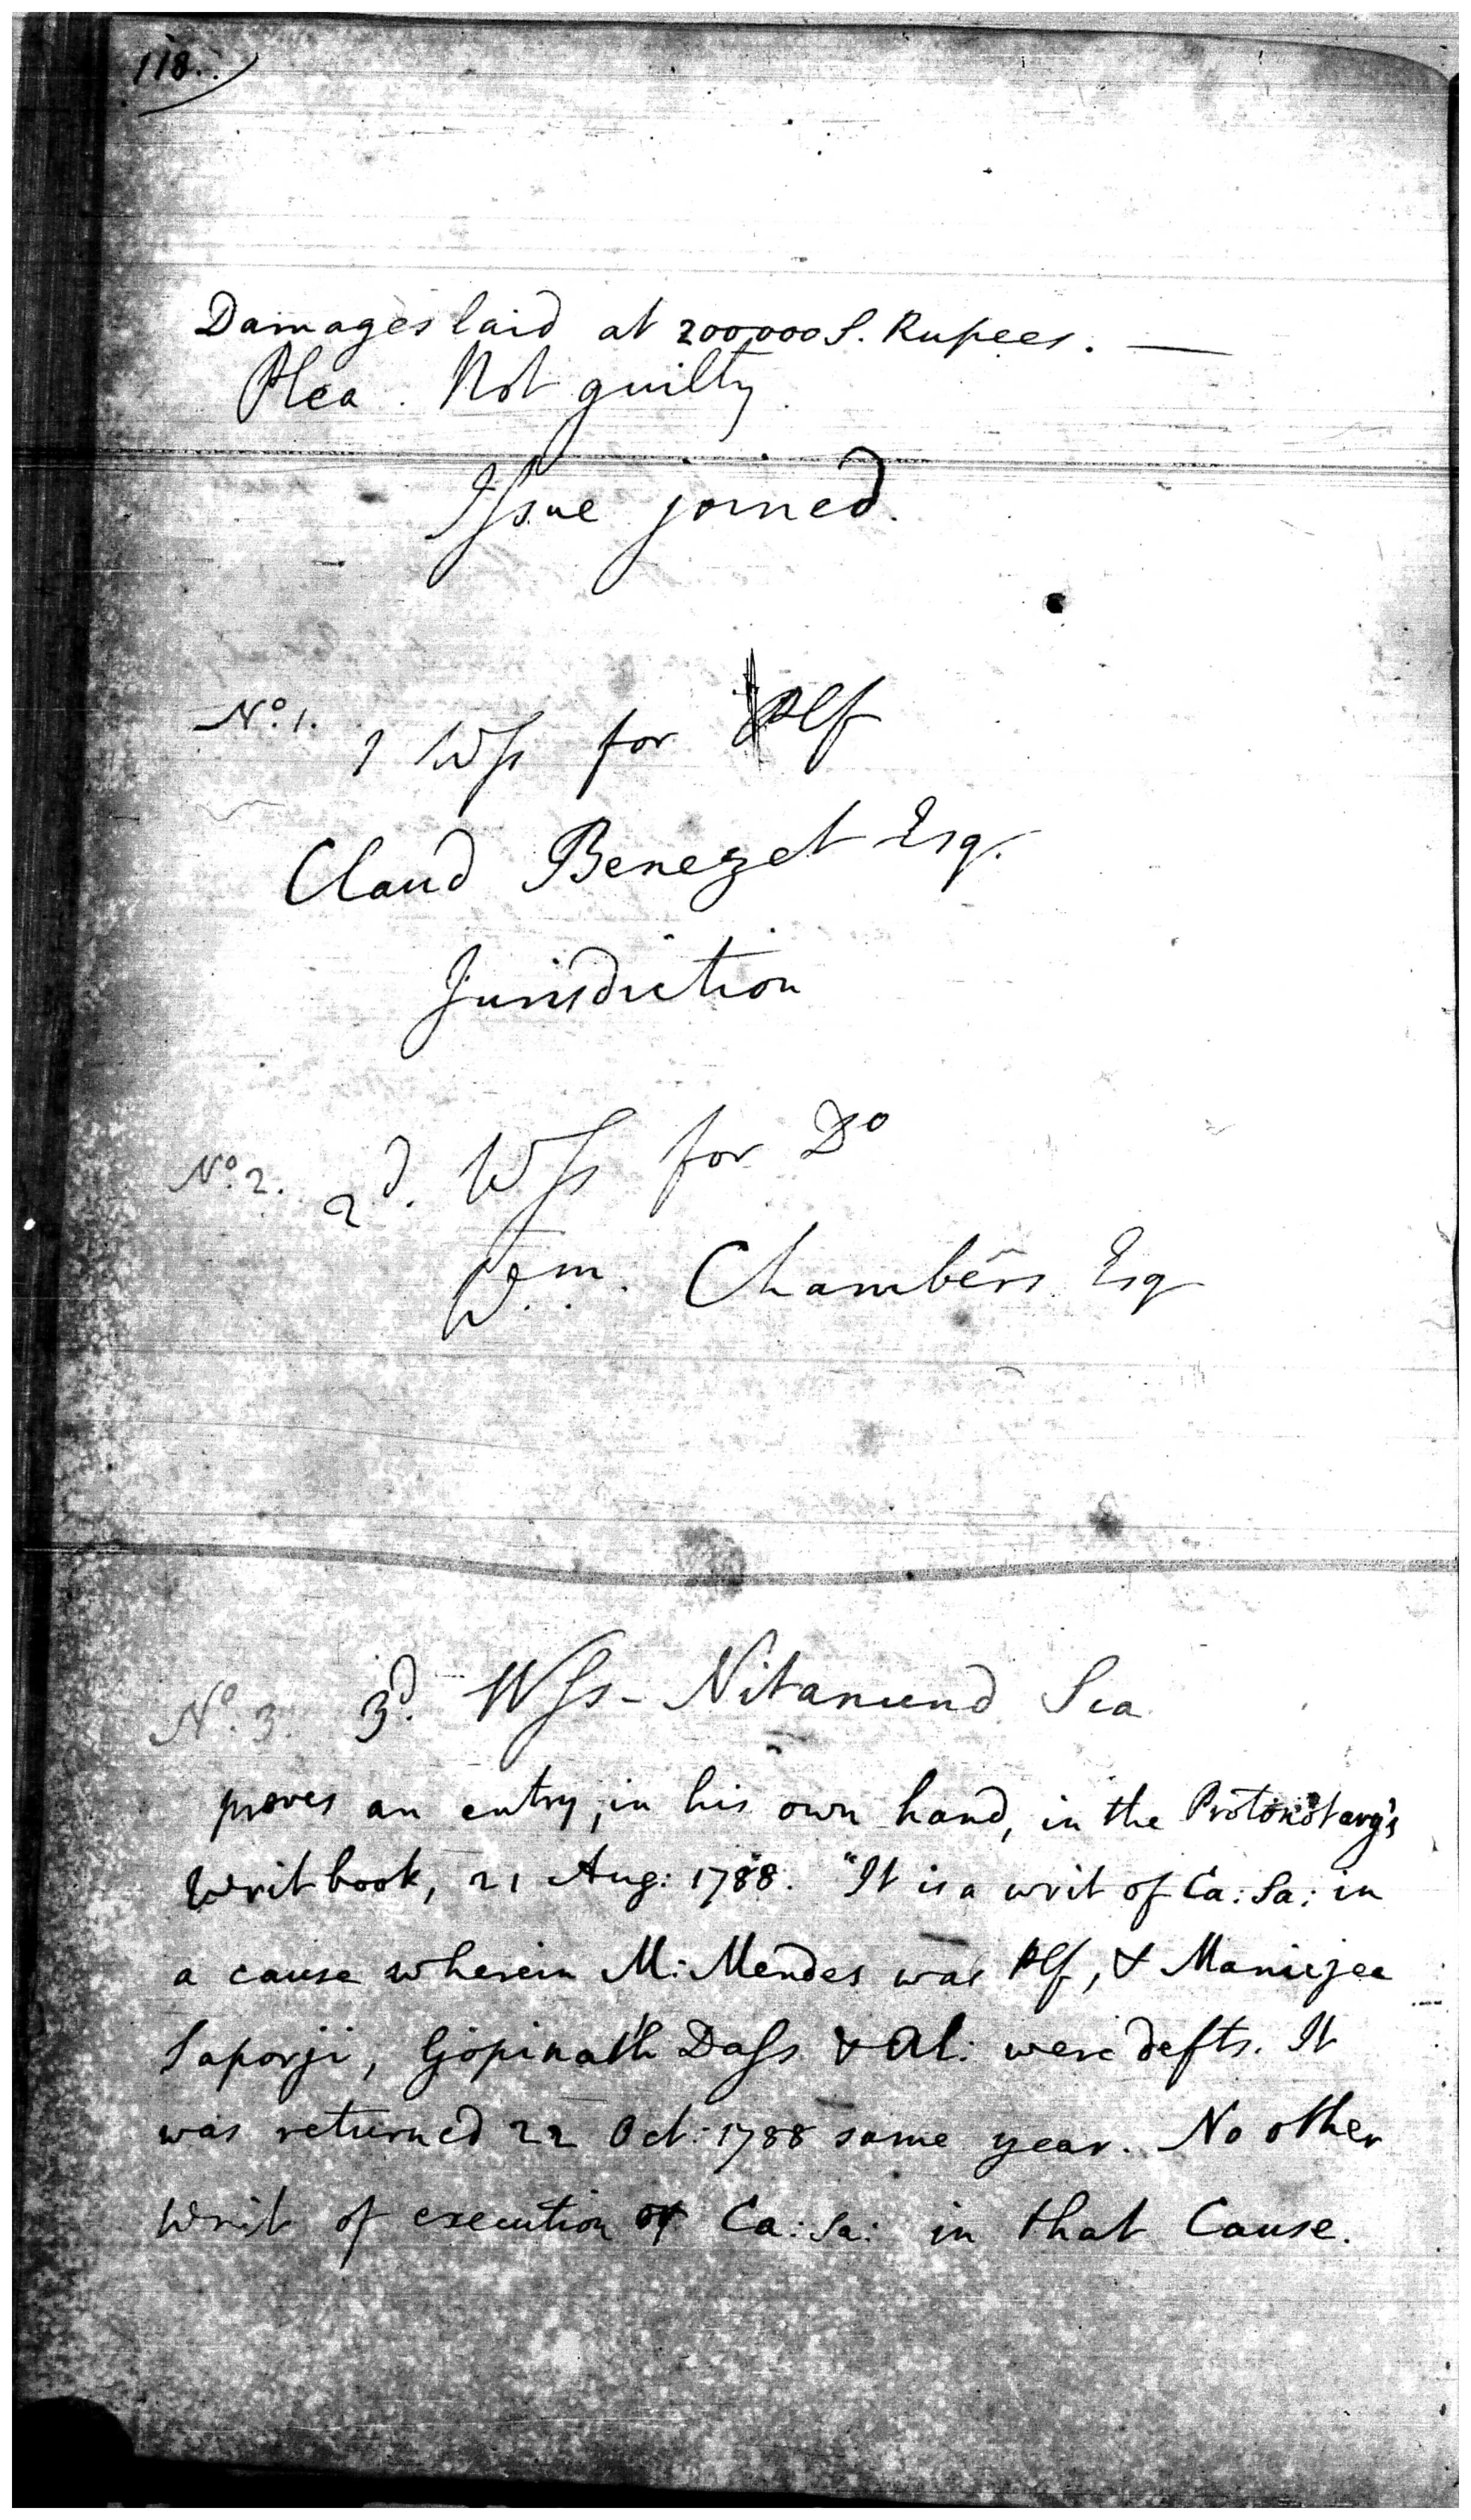 118.
Damages laid at 200000 S. Rupees. —
Plea. Not guilty.
Issue joined.
No. 1. 1 Wss for Plf
Claud Benezet Esq.
Jurisdiction
No. 2. 2d. Wss for Do
Wm. Chambers Esq
No. 3. 3d. Wss - Nitanund Sea
proves an entry, in his own hand, in the Protonotary's
Writ book, 21 Aug: 1788. "It is a writ of Ca: Sa: in
a cause wherein M: Mendes was Plf, & Maniejee
Saporji, Gopinath Dass & Al: were defts. It
was returned 22 Oct: 1788 same year. No other
Writ of execution or Ca: Sa: in that Cause.